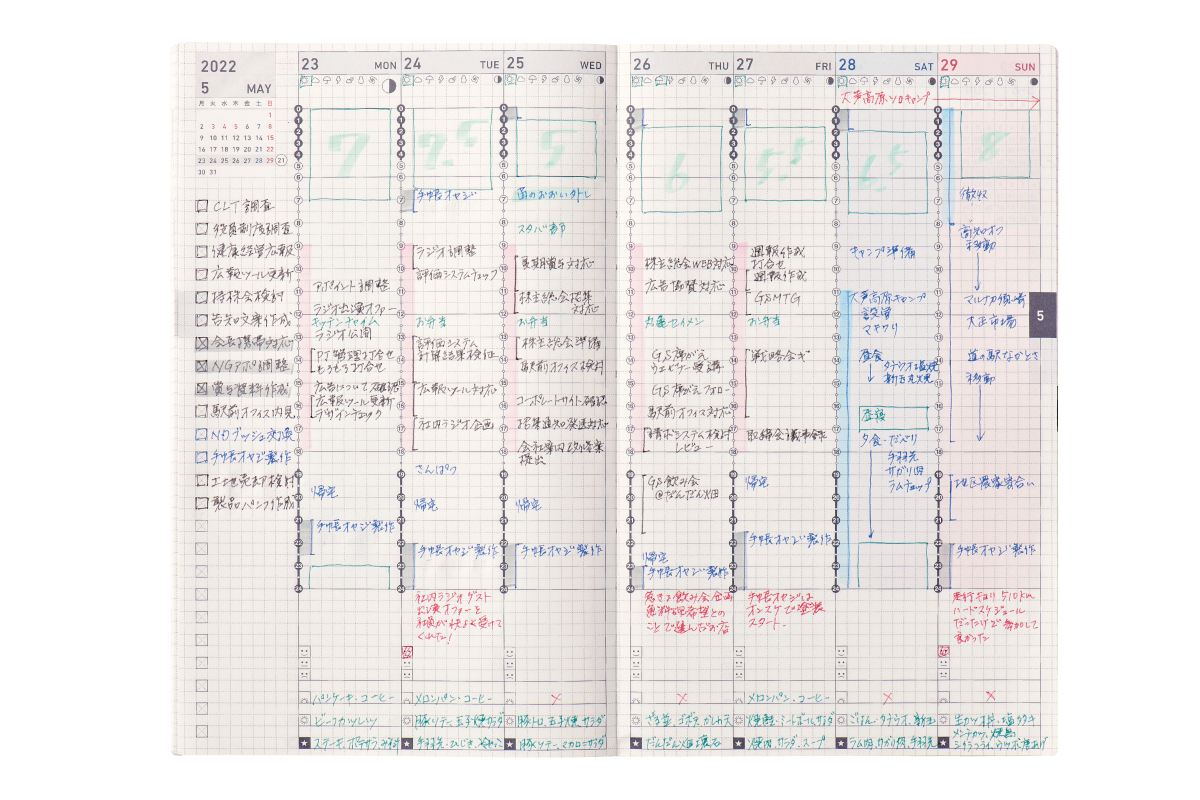 2022
5 MAY
月 火 水 木 金 土 日
1
2 3 4 5 6 7 8
9 10 11 12 13 14 15
16 17 18 19 20 21 22
23 24 25 26 27 28 29
30 31
21
CLT調査
健康経営広報
広報ツール更新
持株会検討
告知文案作成
会長携帯対応
NGアポ調整
賞与資料作成
駅前オフィス内見
NDブッシュ交換
手帳オヤジ製作
製品パンフ作成
23 MON
7
アポイント調整
ラジオ出演オファー
キッチンタイム
ラジオ公開
PJ管理打合せ
もろもろ打合せ
広告について確認
広報ツール更新
デザインチェック
帰宅
手帳オヤジ製作
パンケーキ・コーヒー
ビーフカツレツ
24 TUE
7.5
手帳オヤジ
ラジオ調整
評価システムチェック
お弁当
評価システム
計算結果検証
広報ツール対応
社内ラジオ企画
さんぱつ
帰宅
手帳オヤジ製作
社内ラジオゲスト
出演オファーを
社長が快よく受けて
くれた!
メロンパン・コーヒー
豚ソテー、玉子焼、サラダ
25 WED
5
歯のおおい外し
スタバ
夏期賞与対応
株主総会招集
対応
お弁当
株主総会準備
駅前オフィス検討
コーポレートサイト確認
招集通知発送対応
会社案内改訂案
提出
帰宅
手帳オヤジ製作
×
豚トロ、玉子焼、サラダ
豚ソテー、マカロニサラダ
26 THU
6
株主総会WEB対応
広告協賛対応
丸亀セイメン
GS席がえ
ウェビナー受講
GS席がえフォロー
駅前オフィス対応
情報システム検討
レビュー
GS飲み会
@だんだん畑
帰宅
手帳オヤジ製作
ことで選んだお店
×
27 FRI
5.5
週報作成
打合せ
週報作成
GSMTG
お弁当
戦略会ギ
取締会議事録
帰宅
手帳オヤジ製作
手帳オヤジは
オンスケで塗装
スタート。
メロンパン・コーヒー
焼鮭、ミートボール、サラダ
焼肉、サラダ、スープ
28 SAT
大芦高原ソロキャンプ
6.5
キャンプ準備
大芦高原キャンプ
設営
マキワリ
昼食
昼寝
夕食・だべり
手羽先
サガリ肉
ラムチョップ
×
ラム肉、サガリ肉、手羽先
29 SUN
8
撤収
移動
大正市場
道の駅なかとさ
移動
手帳オヤジ製作
走行キョリ 510km
ハードスケジュール
だったけど参加して
良かった
×
5